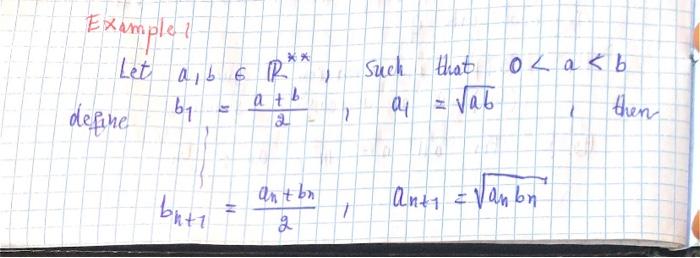 Example 1
Let a, b ∈ ℝ**, such that 0 < a < b
define b₁ = (a + b)/2, a₁ = √(ab), then
bₙ₊₁ = (aₙ + bₙ)/2, aₙ₊₁ = √(aₙ bₙ)